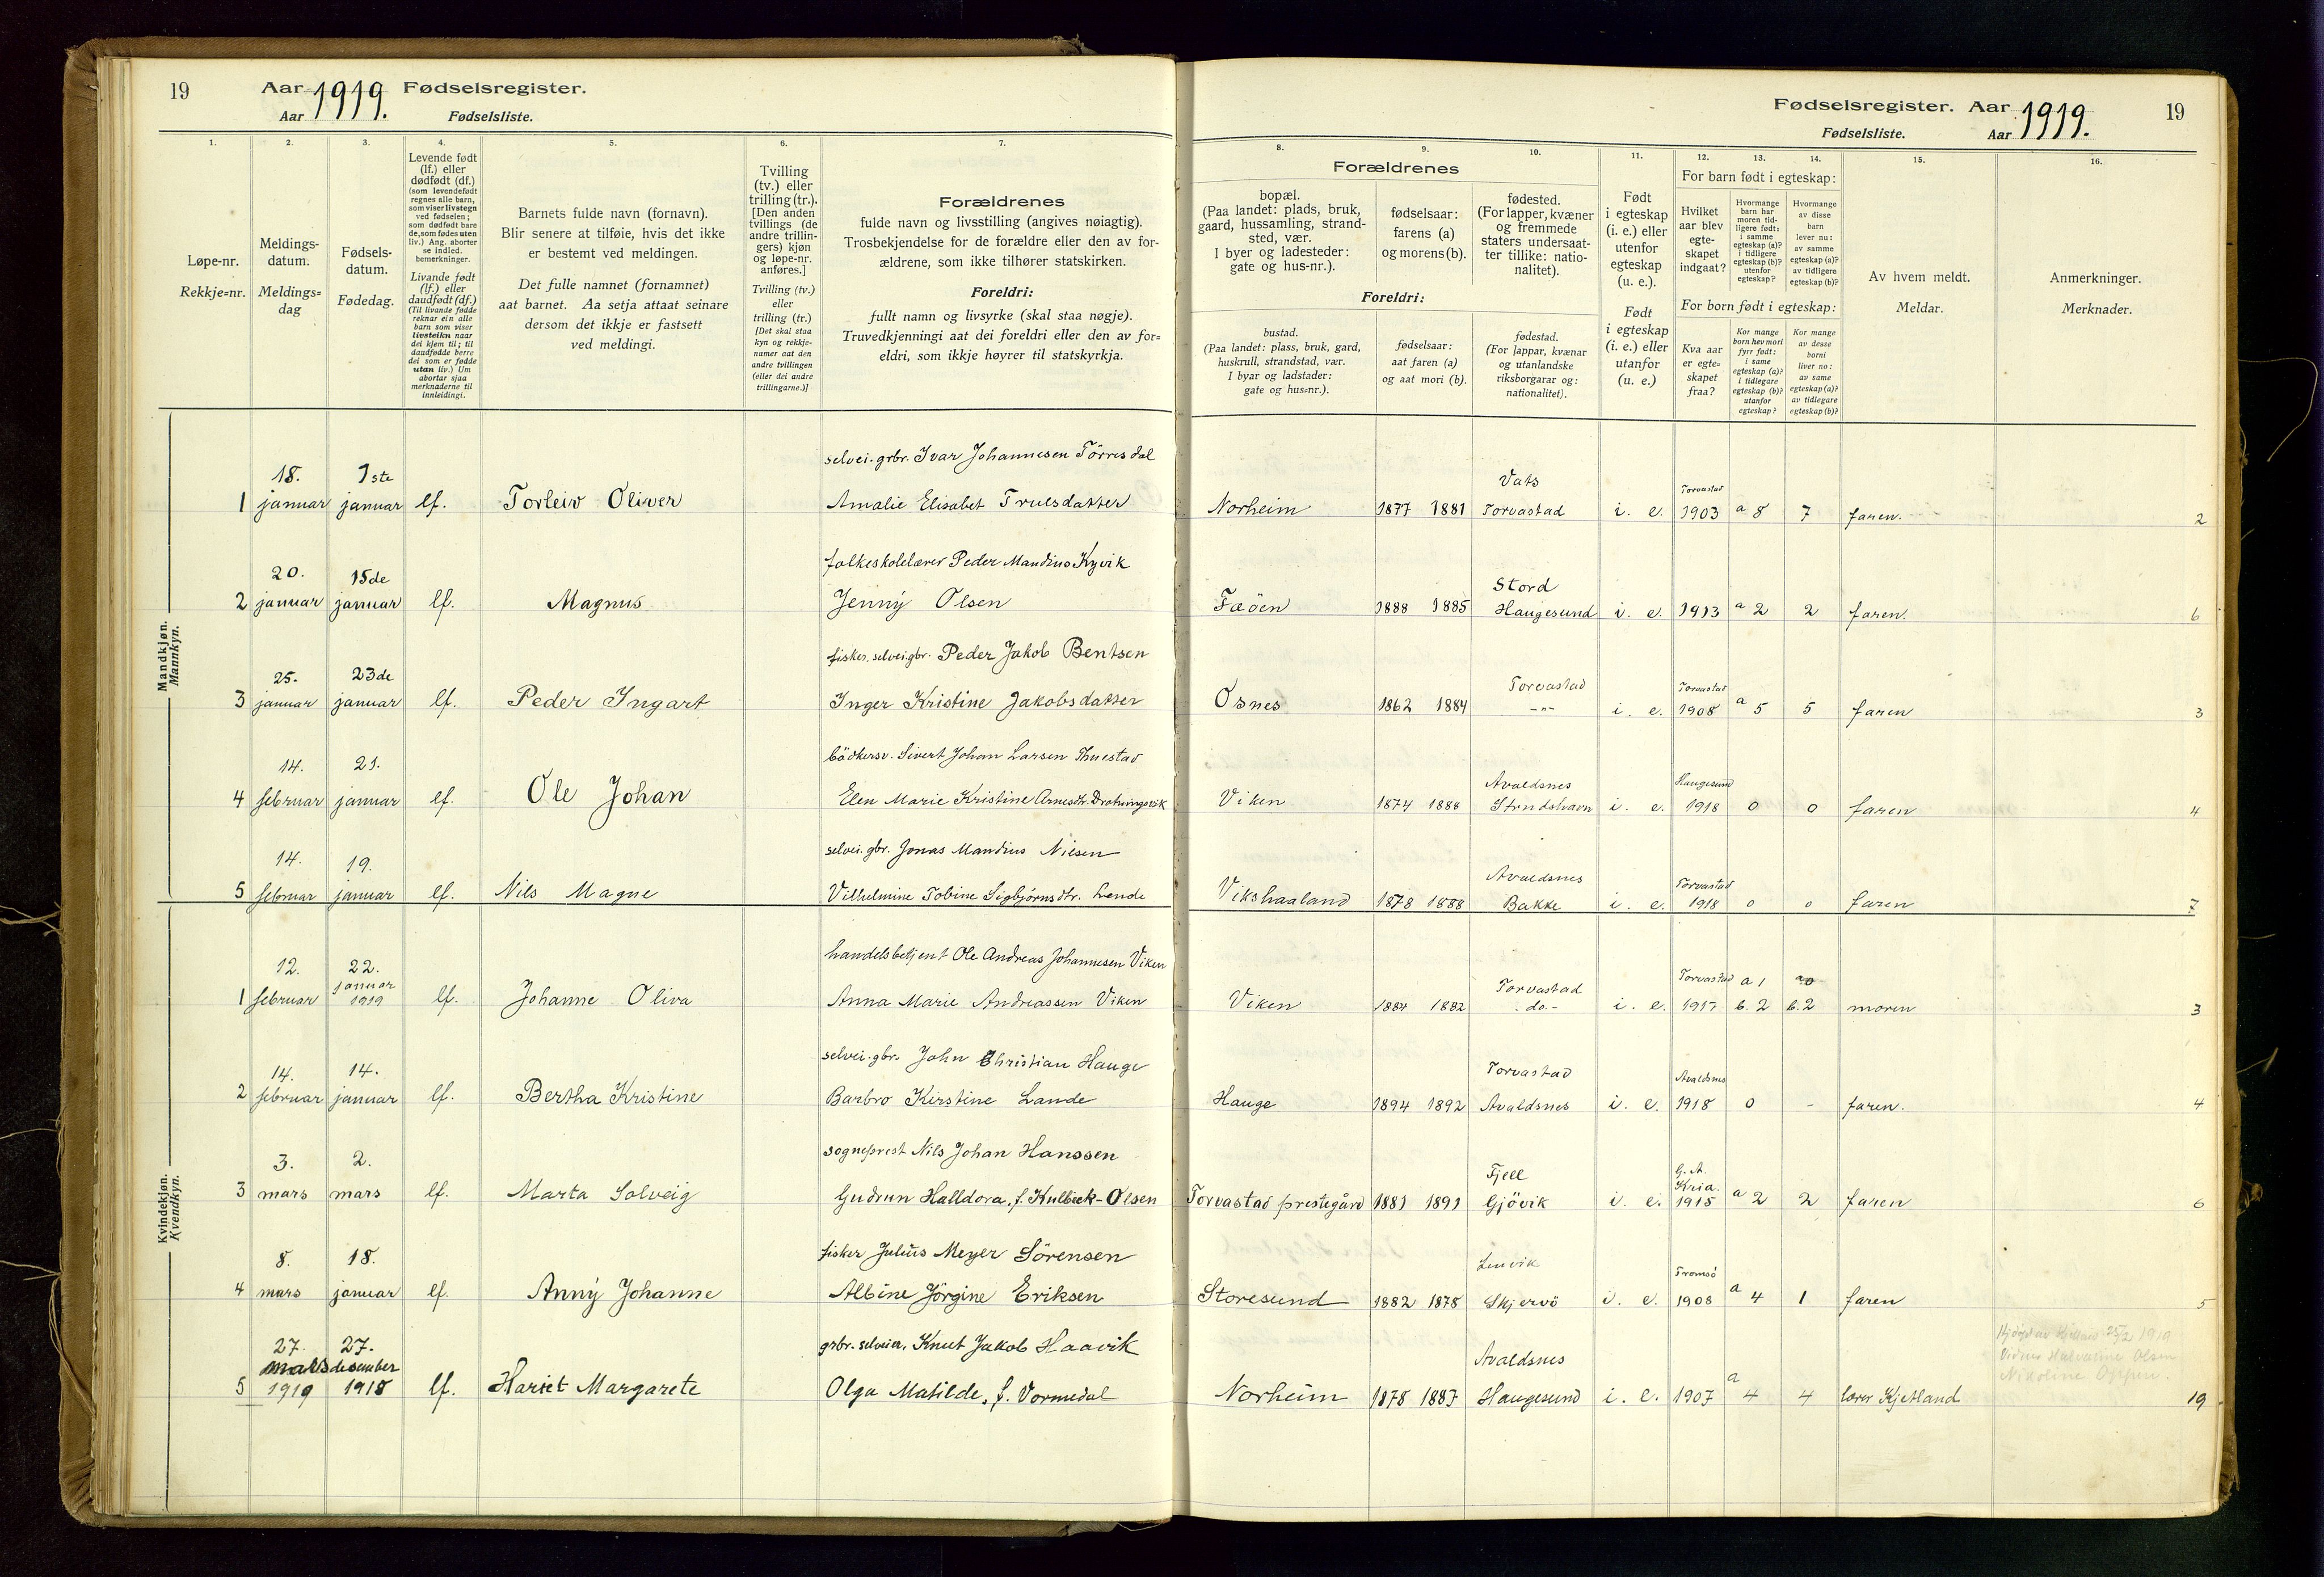 19
Aar 1919. Fødselsregister.
Aar Fødselsliste.
Fødselsregister. Aar 1919.
Fødselsliste. Aar
19
1. 2. 3. 4. 5. 6. 7.
Løpe-nr.
Rekkje=nr.
Meldings-
datum.
Meldings=
dag
Fødsels-
datum.
Fødedag.
Levende født
(lf.) eller
dødfødt (df.)
(som levendefødt
regnes alle barn,
som viser livstegn
ved fødselen;
som dødfødt bare
de, som fødes uten
liv.) Ang. aborter
se indled.
bemerkninger.
Livande født
(lf.) eller
daudfødt (df.)
(Til livande fødde
reknar ein alle
barn som viser
livsteikn naar
dei kjem til; til
daudfødde berre
dei som er fødde
utan liv.) Um
abortar sjaa
merknaderne til
innleidingi.
Barnets fulde navn (fornavn).
Blir senere at tilføie, hvis det ikke
er bestemt ved meldingen.
Det fulle namnet (fornamnet)
aat barnet. Aa setja attaat seinare
dersom det ikkje er fastsett
ved meldingi.
Tvilling
(tv.) eller
trilling (tr.).
[Den anden
tvillings (de
andre trillin-
gers) kjøn
og løpe-nr.
anføres.]
Tvilling (tv.)
eller
trilling (tr.)
[Det skal staa
kyn og rekkje-
numer aat den
andre tvillingen
(eller dei andre
trillingarne.)]
Forældrenes
fulde navn og livsstilling (angives nøiagtig).
Trosbekjendelse for de forældre eller den av for-
ældrene, som ikke tilhører statskirken.
Foreldri:
fullt namn og livsyrke (skal staa nøgje).
Truvedkjenningi aat dei foreldri eller den av for=
eldri, som ikkje høyrer til statskyrkja.
8. 9. 10. 11. 12. 13. 14. 15. 16.
Forældrenes
bopæl.
(Paa landet: plads, bruk,
gaard, hussamling, strand-
sted, vær.
I byer og ladesteder:
gate og hus-nr.).
fødselsaar:
farens (a)
og morens (b).
fødested.
(For lapper, kvæner
og fremmede
staters undersaat-
ter tillike: natio-
nalitet).
Foreldri:
bustad.
(Paa landet: plass, bruk, gard,
huskrull, strandstad, vær.
I byar og ladstader:
gate og hus=nr.).
fødselsaar:
aat faren (a)
og aat mori (b).
fødestad.
(For lappar, kvænar
og utanlandske
riksborgarar og:
nationalitet).
Født
i egteskap
(i. e.) eller
utenfor
egteskap
(u. e.).
Født
i egteskap
(i. e.) eller
utanfor
(u. e.)
For barn født i egteskap:
Hvilket
aar blev
egte-
skapet
indgaat?
Hvormange
barn har
moren tid-
ligere født:
i samme
egteskap (a)?
i tidligere
egteskap (b)?
utenfor
egteskap?
Hvormange
av disse
barn
lever nu:
av samme
egteskap (a)?
av tidligere
egteskap (b)?
For born født i egteskap:
Kva aar
er egte-
skapet
fraa?
Kor mange
born hev mori
fyrr født:
i same
egteskap (a)?
i tidlegare
egteskap (b)?
utanfor
egteskap?
Kor mange
av desse
borni
liver no:
av same
egteskap (a)?
av tidlegare
egteskap (b)?
Av hvem meldt.
Meldar.
Anmerkninger.
Merknader.
Mandkjøn.
Mannkyn.
18. 1ste selvei. grbr. Ivar Johannesen Törresdal Vats Torvastad
1 januar januar lf. Torleiv Oliver Amalie Elisabet Trulsdatter Norheim 1877 1881 Torvastad i. e. 1903 a 8 7 faren. 2
20. 15de folkeskolelærer Peder Mandius Kyvik Stord
2 januar januar lf. Magnus Jenny Olsen Fæöen 1888 1885 Haugesund i. e. 1913 a 2 2 faren. 6
25. 23de fisker, selvei.gbr. Peder Jakob Bentsen Torvastad Torvastad
3 januar januar lf. Peder Ingart Inger Kristine Jakobsdatter Osnes 1862 1884 -"- i. e. 1908 a 5 5 faren 3
14. 21. bödkersv. Sivert Johan Larsen Thuestad Avaldsnes Haugesund
4 februar januar lf. Ole Johan Elen Marie Kristine Arnesdtr. Viken 1874 1888 i. e. 1918 0 0 faren 4
14. 19. selvei. gbr. Jonas Mandius Nilsen Avaldsnes Torvastad
5 februar januar lf. Nils Magne Vilhelmine Tobine Sigbjörnsdtr. Lende Vikshaaland 1878 1888 Bakke i. e. 1918 0 0 faren 7
Kvindekjøn.
Kvendkyn.
12. 22. handelsbetjent Ole Andreas Johannesen Viken Torvastad Torvastad a 1
1 februar januar 1919 lf. Johanne Oliva Anna Marie Andreassen Viken Viken 1884 1882 - do. - i. e. 1917 b. 2 b. 2 moren 3
14. 14. selvei. gbr. John Christian Hauge Torvastad Avaldsnes
2 februar januar lf. Bertha Kristine Barbro Kirstine Lande Hauge 1894 1892 Avaldsnes i. e. 1918 0 - faren. 4
3. 2. sogneprest Nils Johan Hanssen Fjell G. A. Kria.
3 mars mars lf. Marta Solveig Gudrun Halldora, f. Kulbeck-Olsen Torvastad prestegård 1881 1891 Gjövik i. e. 1915 a 2 2 faren 6
8. 18. fisker Julius Meyer Sörensen Lenvik Tromsö
4 mars januar lf. Anny Johanne Albine Jörgine Eriksen Storesund 1882 1878 Skjervö i. e. 1908 a 4 1 faren 5
27. 27. grbr. selveier, Knut Jakob Haavik Avaldsnes
mars desember
5 1919 1918 lf. Hariet Margarete Olga Matilde, f. Vormedal Norheim 1878 1887 Haugesund i. e. 1907 a 4 4 lærer Kjetland 19